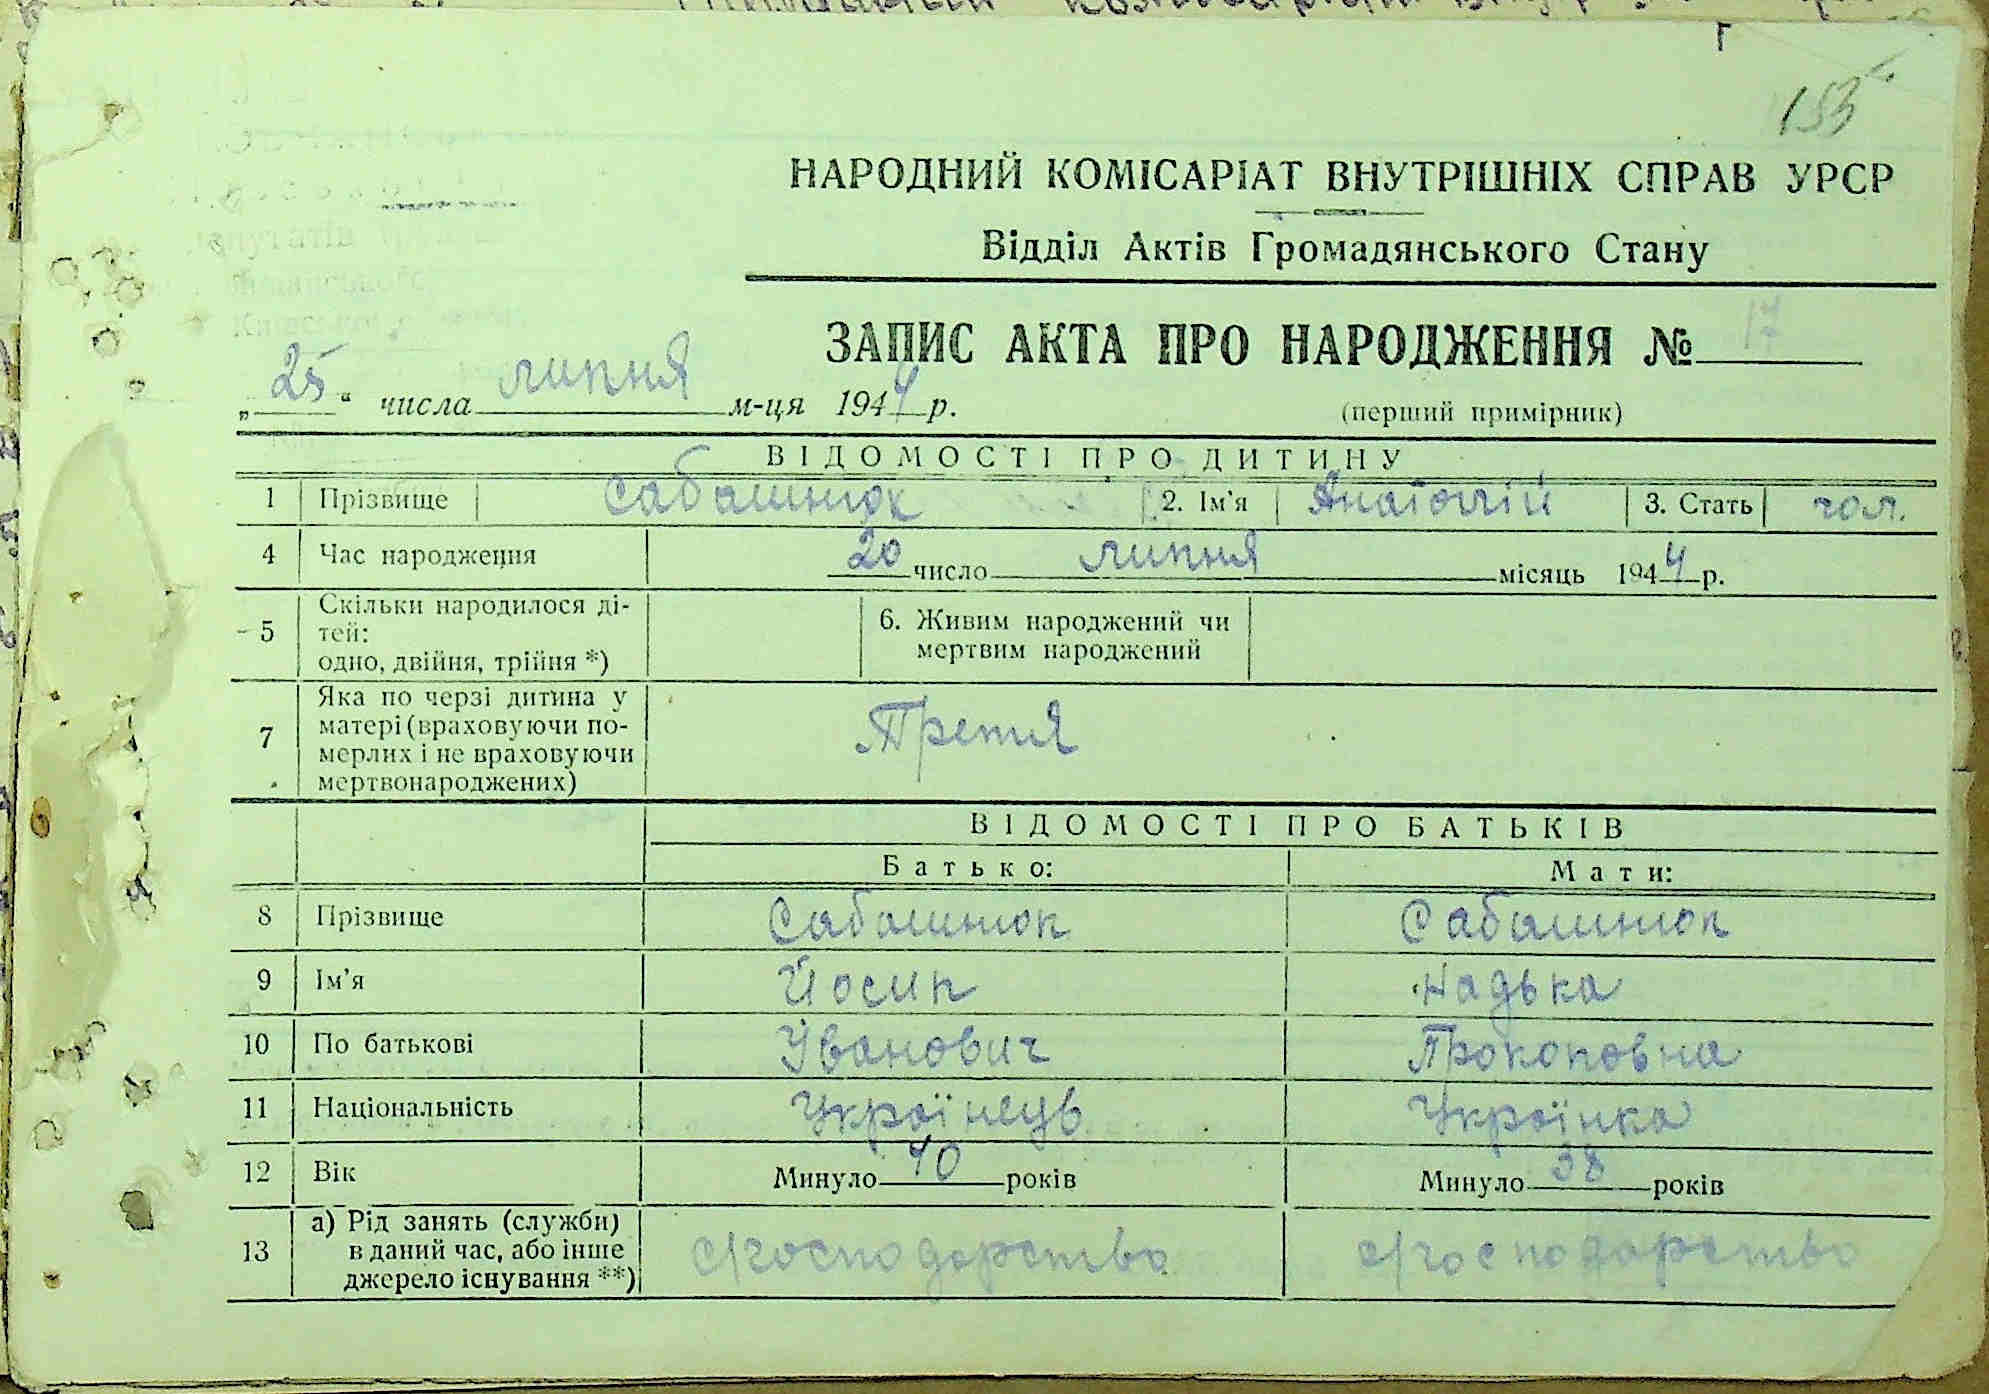 153
НАРОДНИЙ КОМІСАРІАТ ВНУТРІШНІХ СПРАВ УРСР
Відділ Актів Громадянського Стану
ЗАПИС АКТА ПРО НАРОДЖЕННЯ № 17
„25“ числа липня м-ця 1944 р.
(перший примірник)
ВІДОМОСТІ ПРО ДИТИНУ
1 Прізвище Сабашнюк 2. Ім'я Анатолій 3. Стать чол.
4 Час народження 20 число липня місяць 1944 р.
5 Скільки народилося ді-
тей:
одно, двійня, трійня *)
6. Живим народжений чи
мертвим народжений
7 Яка по черзі дитина у
матері (враховуючи по-
мерлих і не враховуючи
мертвонароджених)
Третя
ВІДОМОСТІ ПРО БАТЬКІВ
Батько: Мати:
8 Прізвище Сабашнюк Сабашнюк
9 Ім'я Йосип Надька
10 По батькові Іванович Прокоповна
11 Національність Українець Українка
12 Вік Минуло 40 років Минуло 38 років
13 а) Рід занять (служби)
в даний час, або інше
джерело існування **)
с/господарство с/господарство